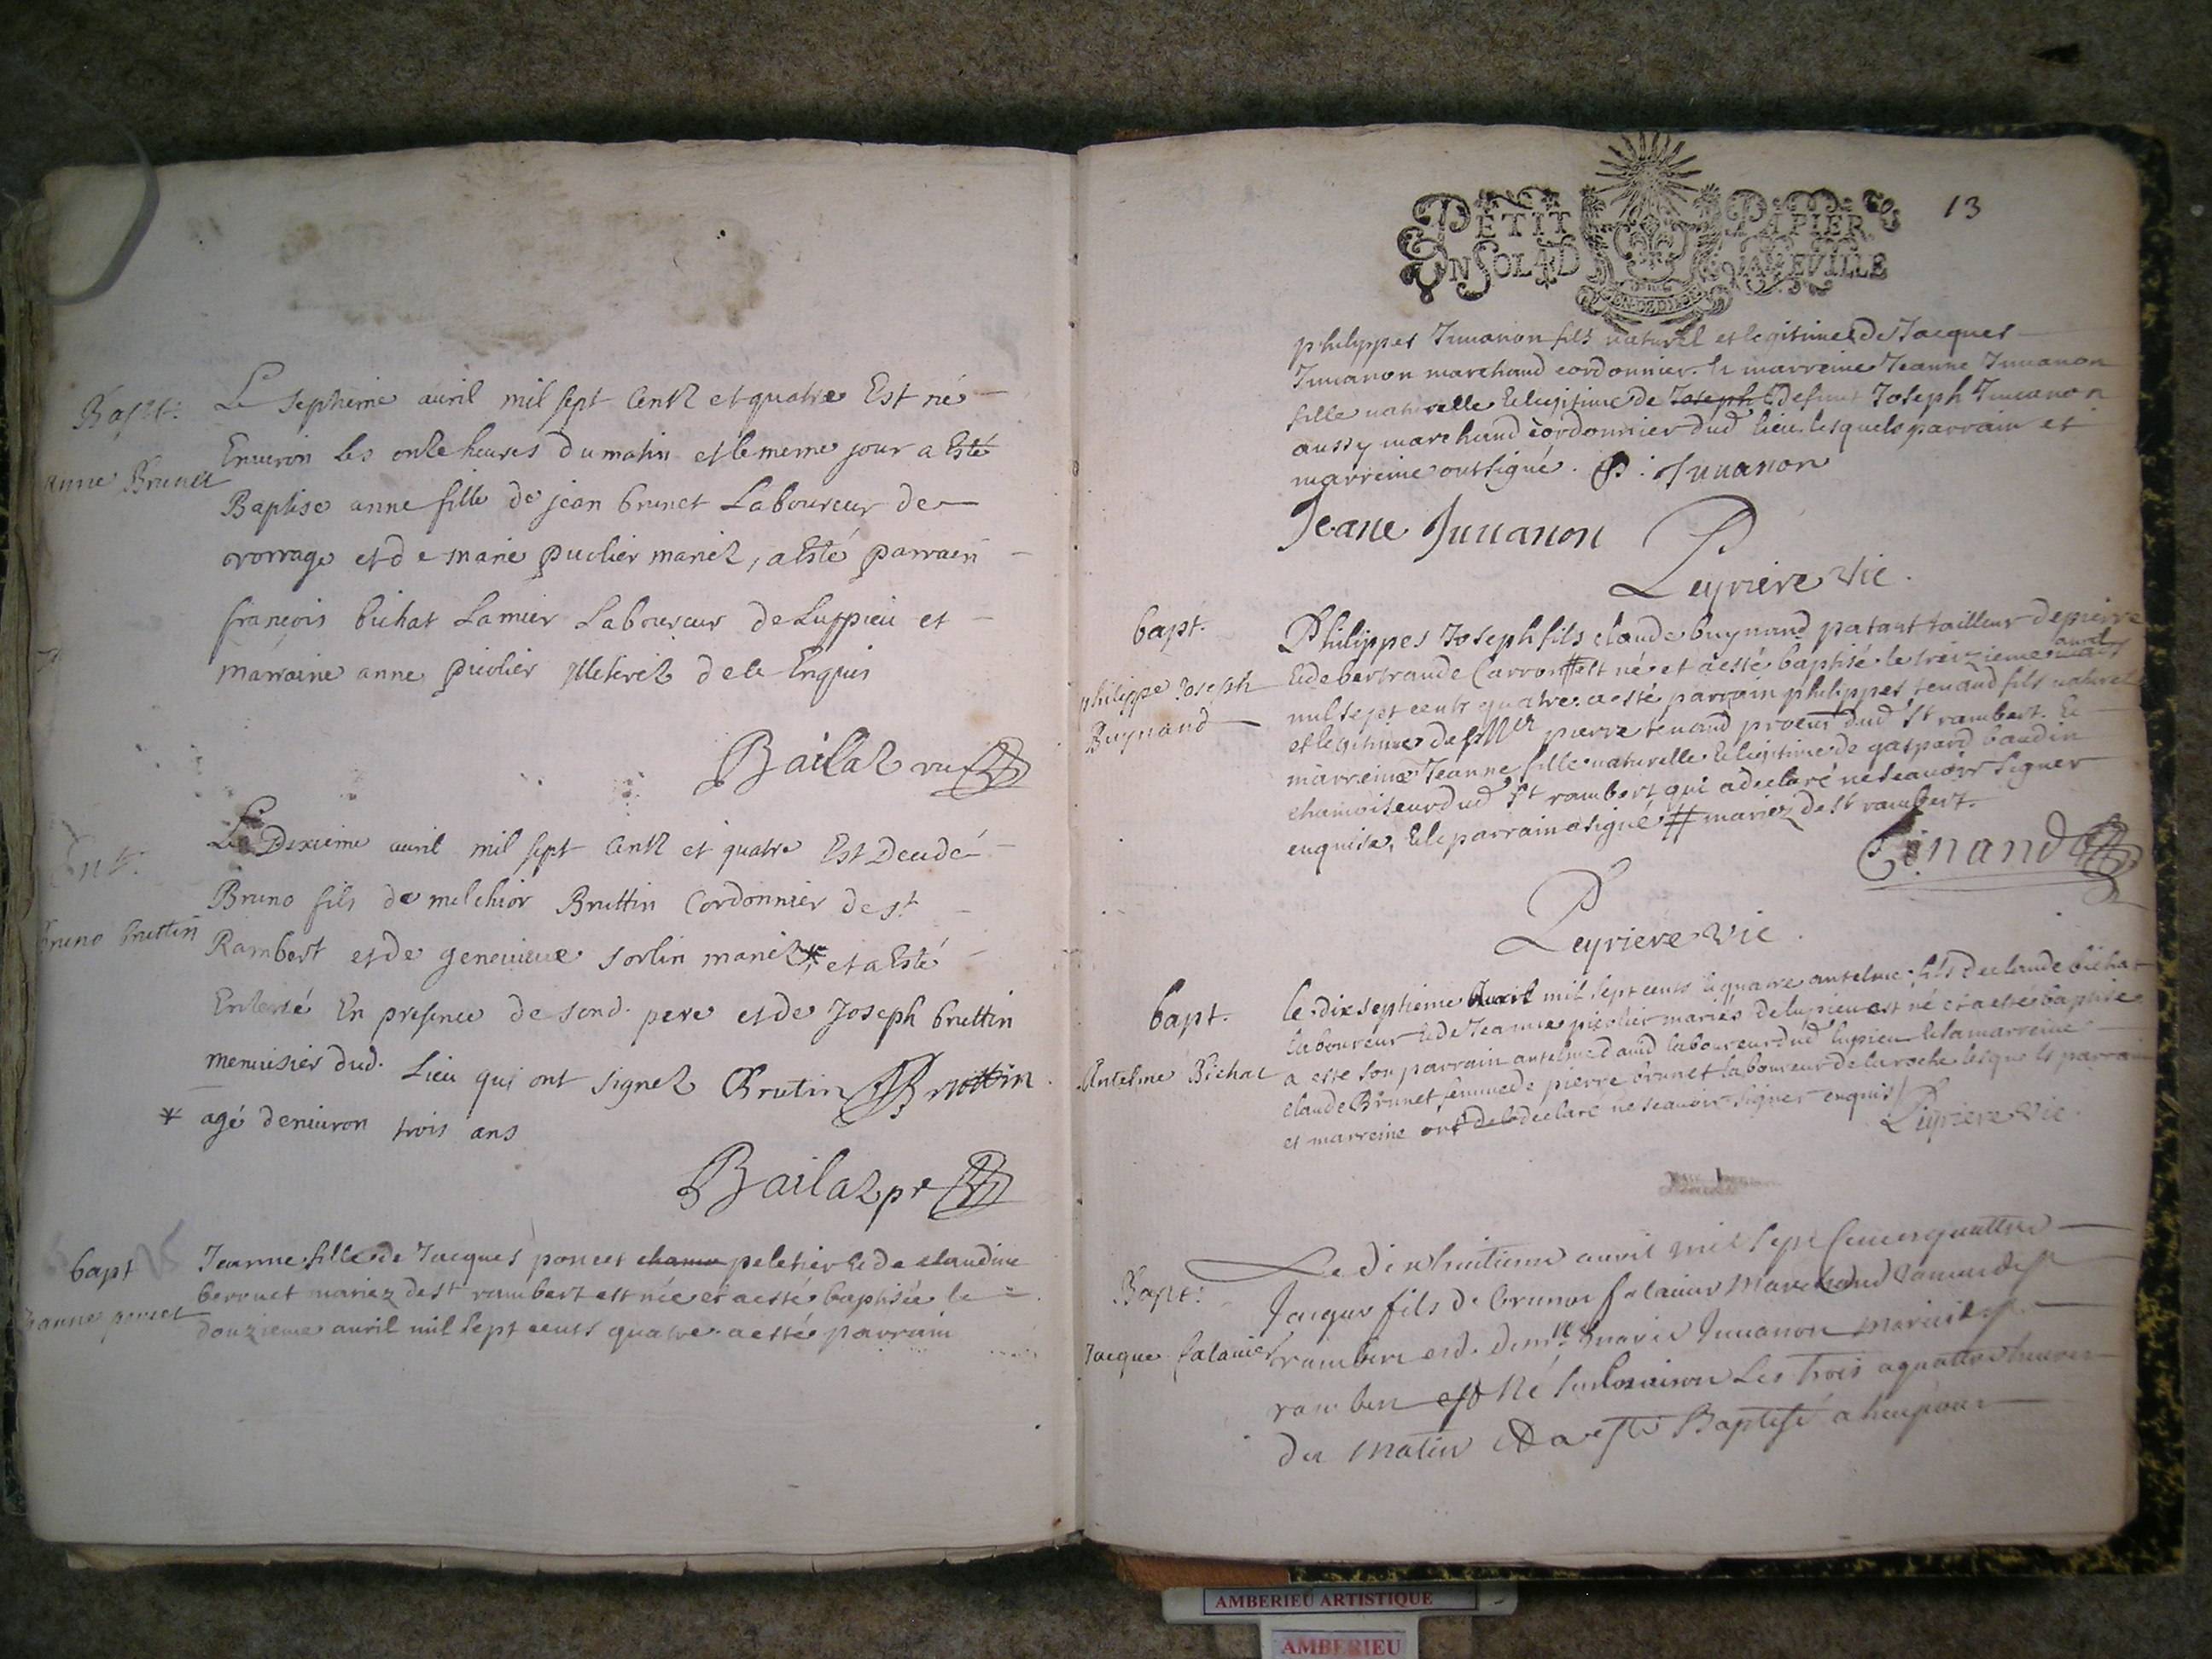 Bapt:
anne Brunet
Le septieme auril mil sept Centz et quatre Est né
Enuiron les onze heures du matin et le meme jour a Esté
Baptise anne fille de jean brunet Laboureur de
vorrage et de marie puolier mariez, a Esté parrain
françois bichat Lamier Laboureur de Luppieu et
marraine anne piuolier Illeterez de ce Enquis
Bailaz vic
Ent.
bruno bruttin
Le Dixieme auril mil sept Centz et quatre Est Decedé
Bruno fils de melchior Bruttin Cordonnier de st
Rambert et de geneuieue sorlin mariez * et a Esté
Enterré En presence de sond. pere et de Joseph bruttin
menuisier dud. Lieu qui ont signez Brutin JBruttin
* agé denuiron trois ans
Bailaz pr
bapt
Jeanne poncet
Jeanne fille de Jacques poncet chamo peletier & de claudine
berruet mariez de st rambert est née et a esté baptisée le
douzieme auril mil sept cents quatre a esté parrain
13
PETIT PAPIER
UN SOL 4 D LA FEVILLE
philippes Juuanon fils naturel et legitime de Jacques
Juuanon marchand cordonnier & marreine Jeanne Juuanon
fille naturelle & legitime de Joseph defunt Joseph Juuanon
aussy marchand cordonnier dud lieu lesquels parrain et
marreine ont signé. P: Juuanon
Jeane Juuanon
Leyriere vic.
bapt.
philippe Joseph
Buynand
Philippes Joseph fils claude buynand patant tailleur de pierre
& de bertrande Carron # est né et a esté baptisé le treizieme mars auril
mil sept cents quatre. a esté parrain philippes tenand fils naturel
et legitime de Mer pierre tenand procur dud St rambert. &
marreine Jeanne fille naturelle & legitime de gaspard baudin
chamoiseur dud St rambert qui a declaré ne scauoir signer
enquise, & le parrain a signé # mariez de St rambert.
Tenand
Leyriere vic.
bapt.
Antelme Bichat
le dix septieme Auril mil sept cents & quatre antelme fils de claude bichat
laboureur & de Jeanne piuolier mariés de lupieu est né et a esté baptisé
a esté son parrain antelme dauid laboureur dud lupieu & la marreine
claude Brunet femme de pierre brunet laboureur de la roche lesquels parrain
et marreine ont de ce declaré ne scauoir signer enquis
Leyriere vic.
Bapt:
Jacque falauier
Le dixhuitieme auril mil sept Cent et quattre
Jacque fils de brunos falauier Marchand Tanneur de st
rambert et de demlle marie Juuanon mariez de st
rambert est Né sur lenuiron Les trois a quattre heures
du matin & a esté Baptisé a heu pour
AMBERIEU ARTISTIQUE
AMBERIEU